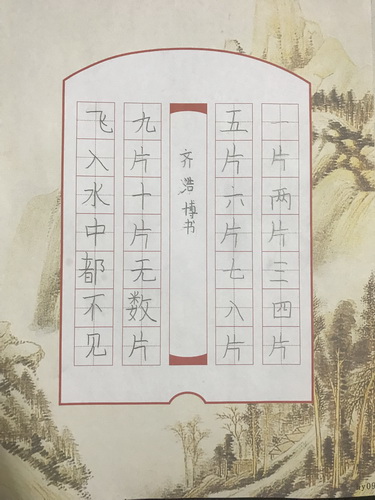 一片两片三四片
五片六片七八片
齐浩博书
九片十片无数片
飞入水中都不见